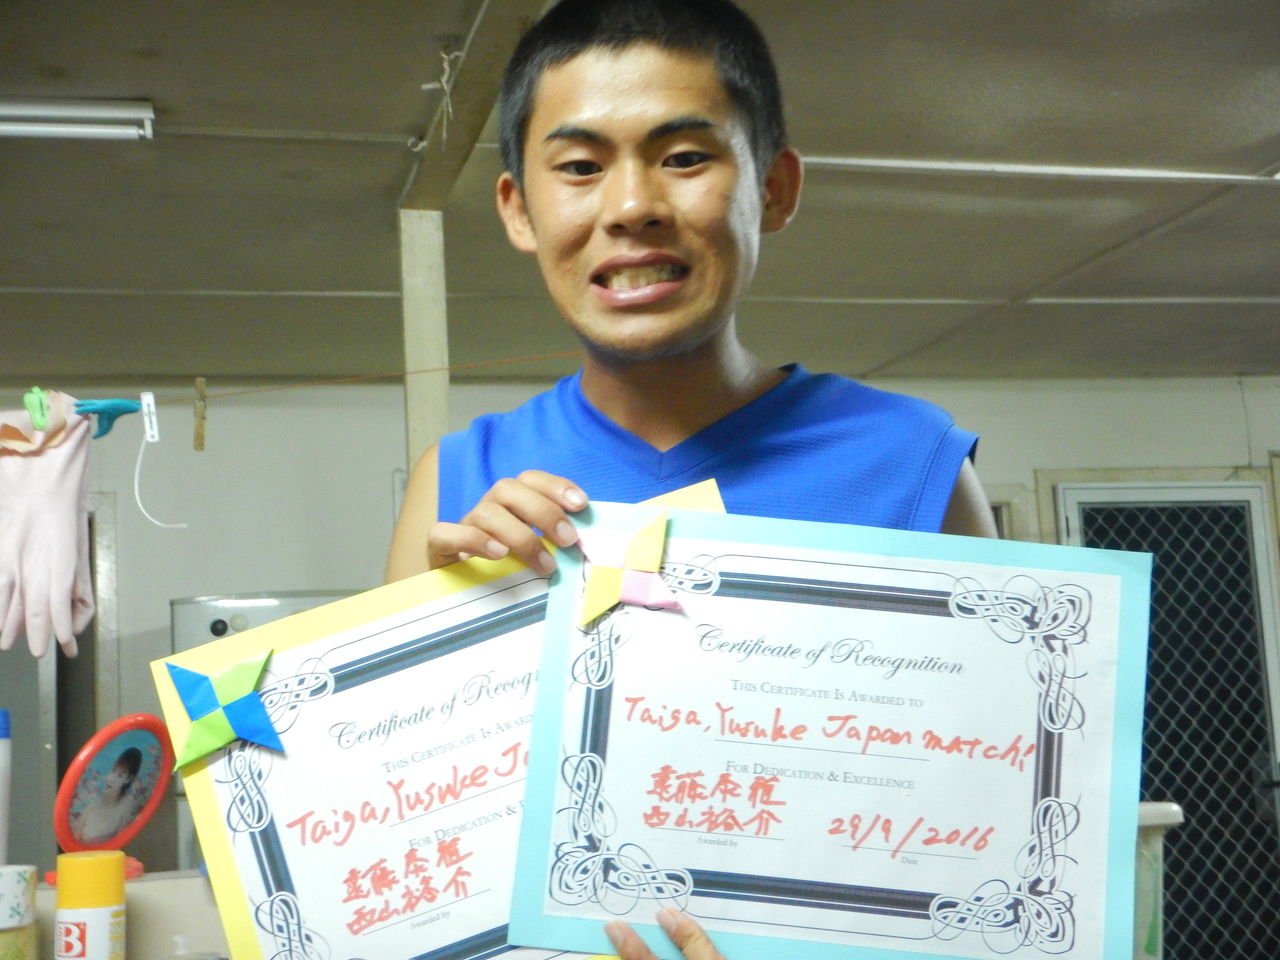 Certificate of Recognition
THIS CERTIFICATE IS AWARDED TO
Taiga, Yusuke Japan match!
FOR DEDICATION & EXCELLENCE
遠藤泰雅
西山裕介
29/9/2016
Awarded by
Date
Certificate of Recogn
THIS CERTIFICATE IS AWARD
Taiga, Yusuke Ja
FOR DEDICATION &
遠藤泰雅
西山裕介
Awarded by
B